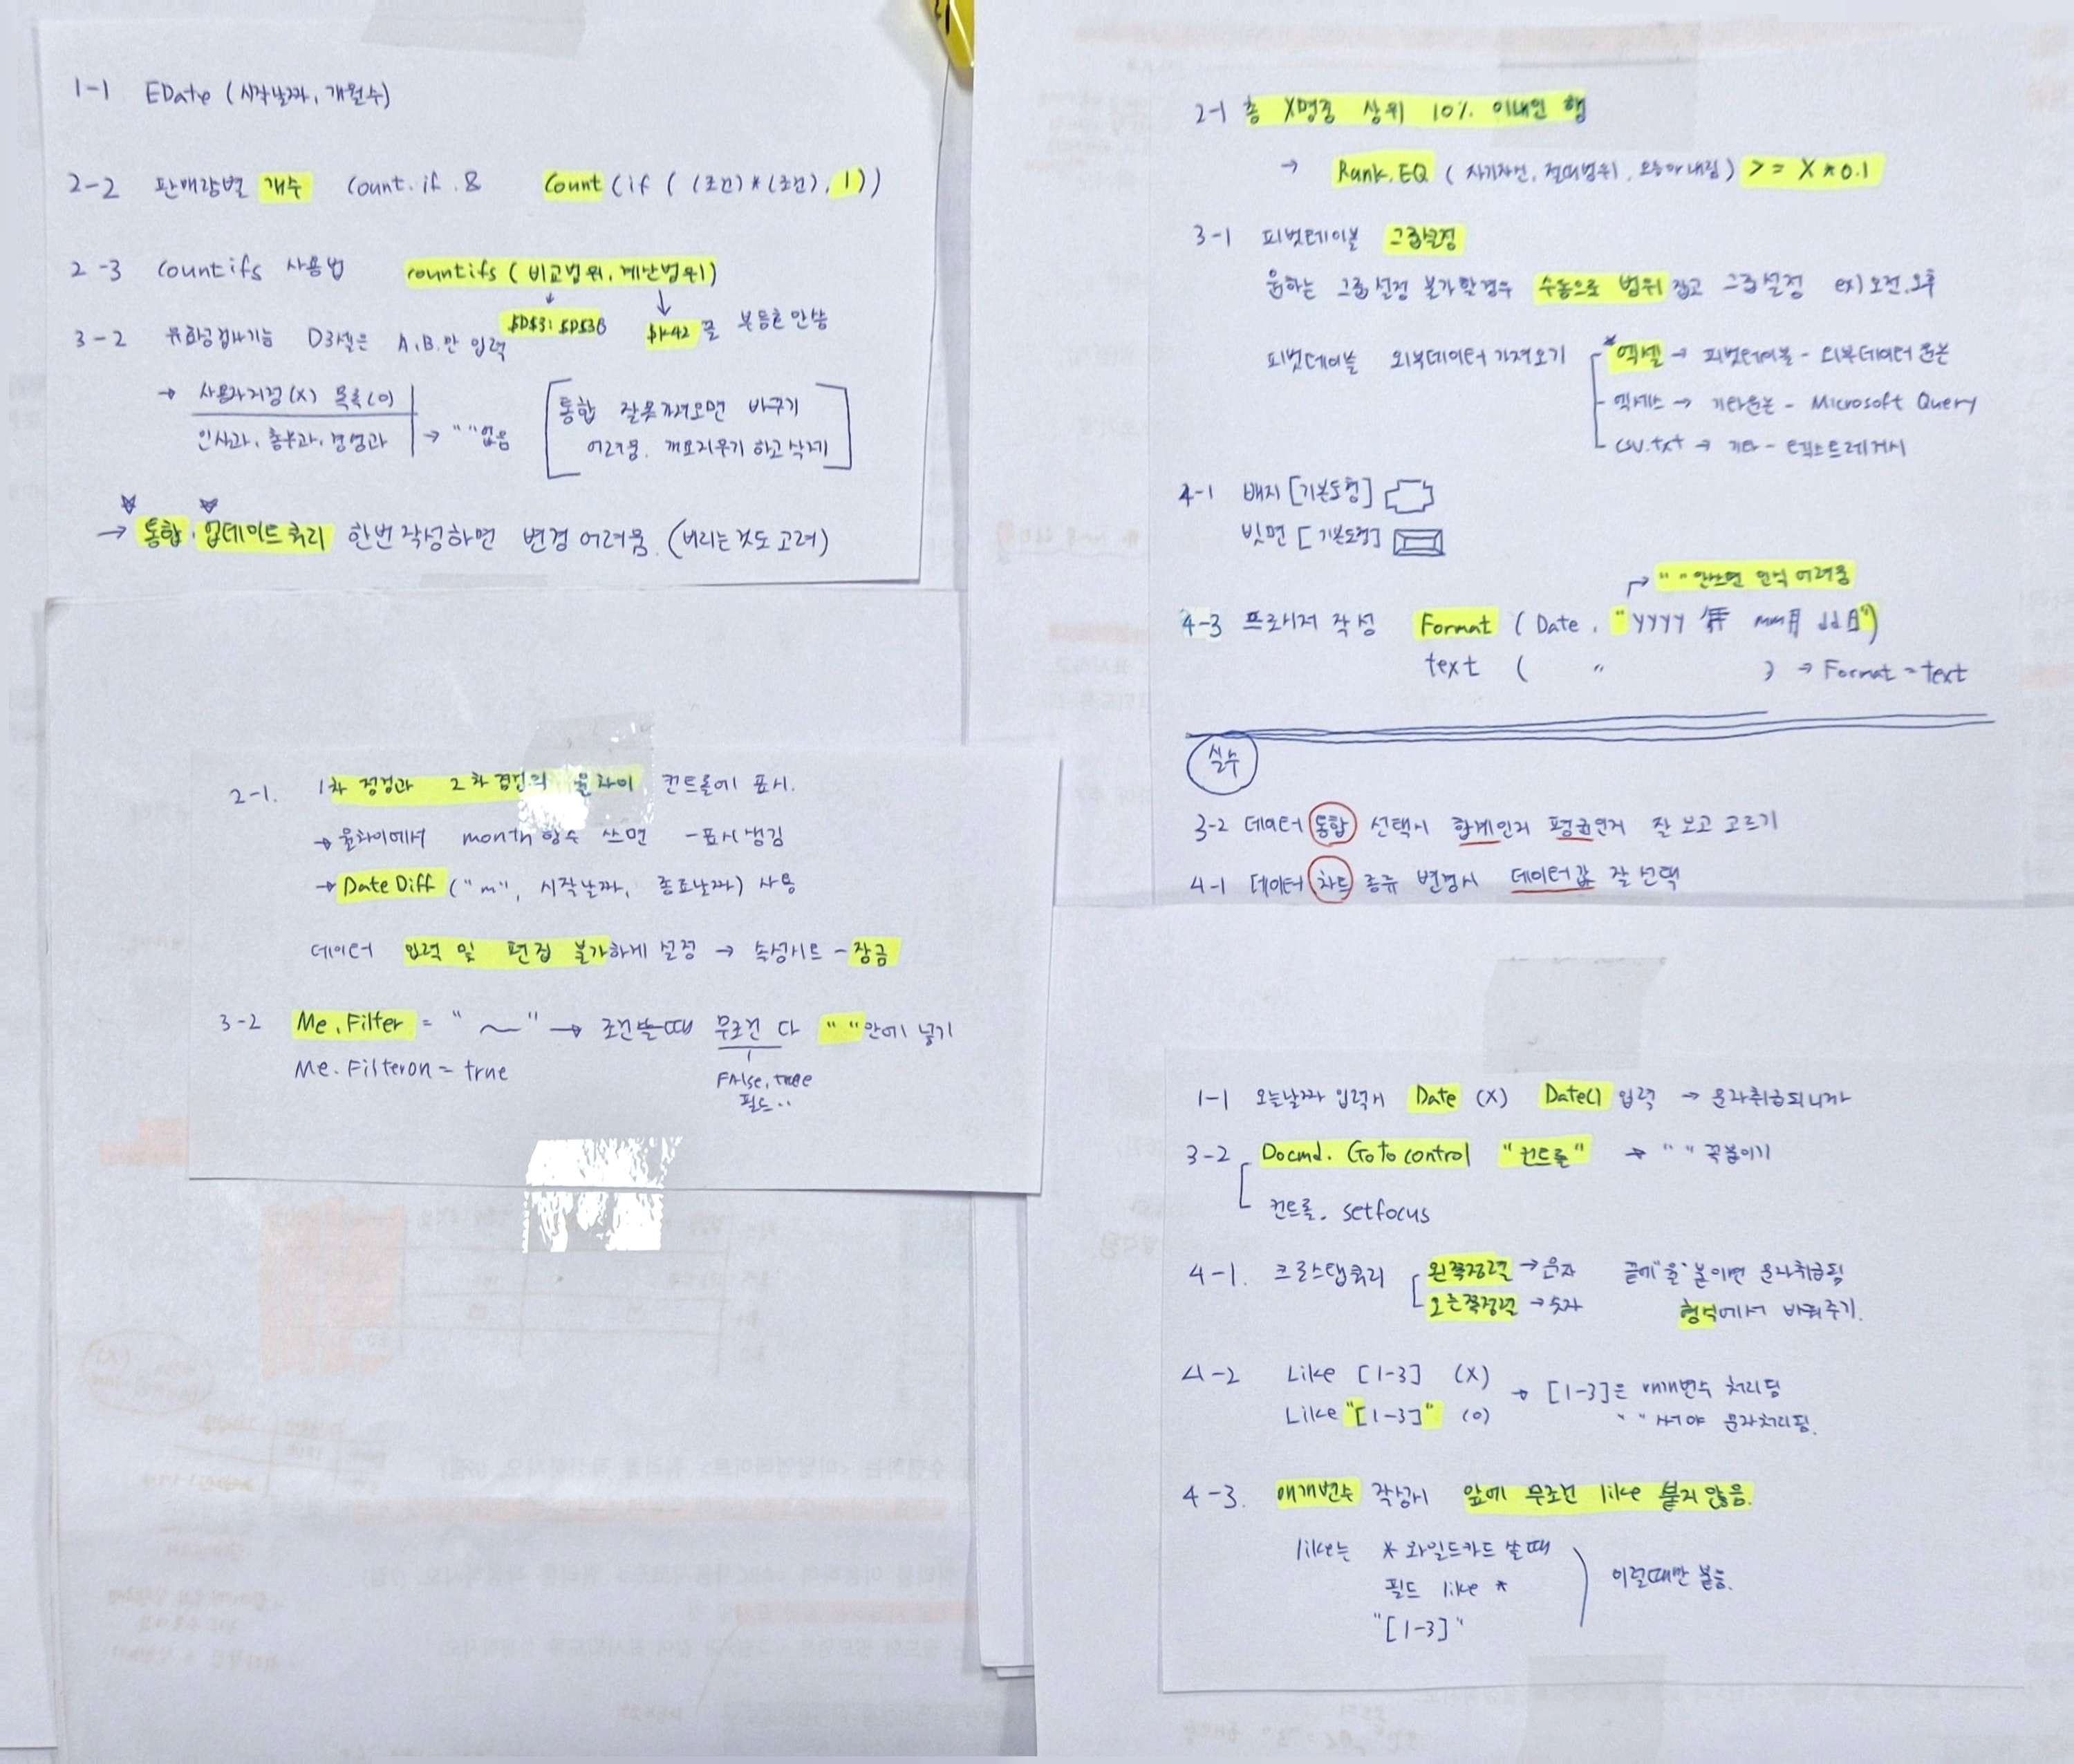 1-1 EDate (시작날짜, 개월수)
2-2 판매량별 개수 Count.if & Count(if((조건)*(조건),1))
2-3 Countifs 사용법 countifs(비교범위, 계산범위)
$D$3:$D$38 $K42 꼴 부등호 안씀
3-2 유효성검사기능 D3셀은 A,B만 입력
→ 사용자지정(X) 목록(O)
인사과, 총무과, 경영과 → " "없음
통합 잘못가져오면 바꾸기
어려움. 꼭모두지우기 하고 삭제
→ 통합, 업데이트쿼리 한번 작성하면 변경 어려움. (버리는것도 고려)
2-1. 1차 점검과 2차 점검의 월차이 컨트롤에 표시.
→ 월차이에서 month함수 쓰면 -표시 생김
→ DateDiff ("m", 시작날짜, 종료날짜) 사용
데이터 입력 및 편집 불가하게 설정 → 속성시트 - 잠금
3-2 Me.Filter = " ~ " → 조건쓸때 무조건 다 " "안에 넣기
Me.Filteron = true
FAlse, true
필드..
2-1 총 X명중 상위 10% 이내인 행
→ Rank.EQ (자기자신, 절대범위, 오름or내림) >= X*0.1
3-1 피벗테이블 그룹설정
원하는 그룹설정 불가할경우 수동으로 범위 잡고 그룹설정 ex) 오전, 오후
피벗테이블 외부데이터 가져오기 *엑셀 → 피벗테이블 - 외부데이터 원본
엑세스 → 기타원본 - Microsoft Query
csv.txt → 기타 - 텍스트레거시
4-1 배지 [기본도형]
빗면 [기본도형]
→ " " 안쓰면 인식 어려움
4-3 프로시저 작성 Format (Date, "yyyy年 mm月 dd日")
text ( " ) → Format = text
실수
3-2 데이터 통합 선택시 합계인지 평균인지 잘 보고 고르기
4-1 데이터 차트 종류 변경시 데이터값 잘 선택
1-1 오늘날짜 입력시 Date (X) Date() 입력 → 문자취급되니까
3-2 Docmd.GoTocontrol "컨트롤" → " " 꼭붙이기
컨트롤.setfocus
4-1. 크로스탭쿼리 왼쪽정렬 → 문자 끝에"을" 붙이면 문자취급됨
오른쪽정렬 → 숫자 형식에서 바꿔주기.
4-2 Like [1-3] (X) → [1-3]은 매개변수 처리됨
Like "[1-3]" (O) " " 써야 문자처리됨.
4-3. 매개변수 작성시 앞에 무조건 like 붙지 않음.
like는 * 와일드카드 쓸때
필드 like * 이럴때만 붙음.
"[1-3]"